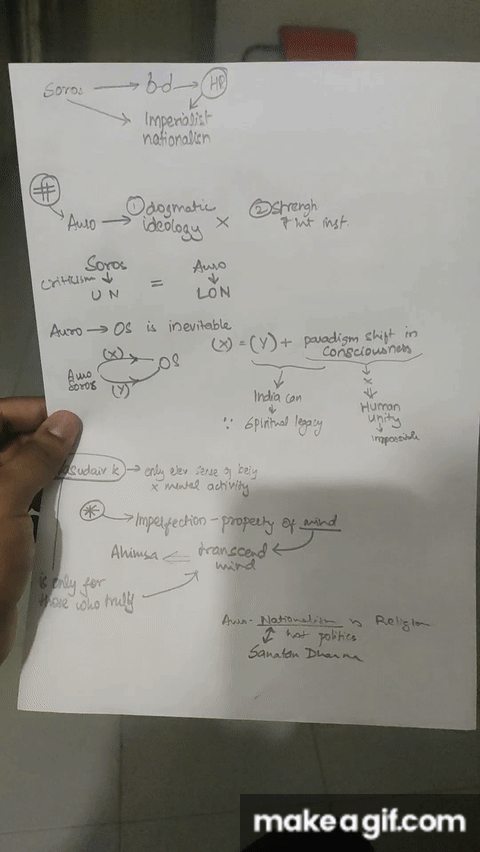 Soros → b-d → HR
Imperialist
nationalism
#
Auro → ① dogmatic
ideology ×
② Strengh
of int inst.
Soros
Criticism ↓
UN
=
Auro
↓
LON
Auro → OS is inevitable
(X) = (Y) + paradigm shift in
consciousness
(X)
Auro
Soros
OS
(Y)
India can
∵ Spiritual legacy
×
Human
Unity
impossible
asudaiv k → only elev sense of
× mental activity
* → Imperfection - property of mind
Ahimsa ⇐ transcend
mind
is only for
those who truly
Auro - Nationalism is Religion
not politics
Sanatan Dharma
makeagif.com